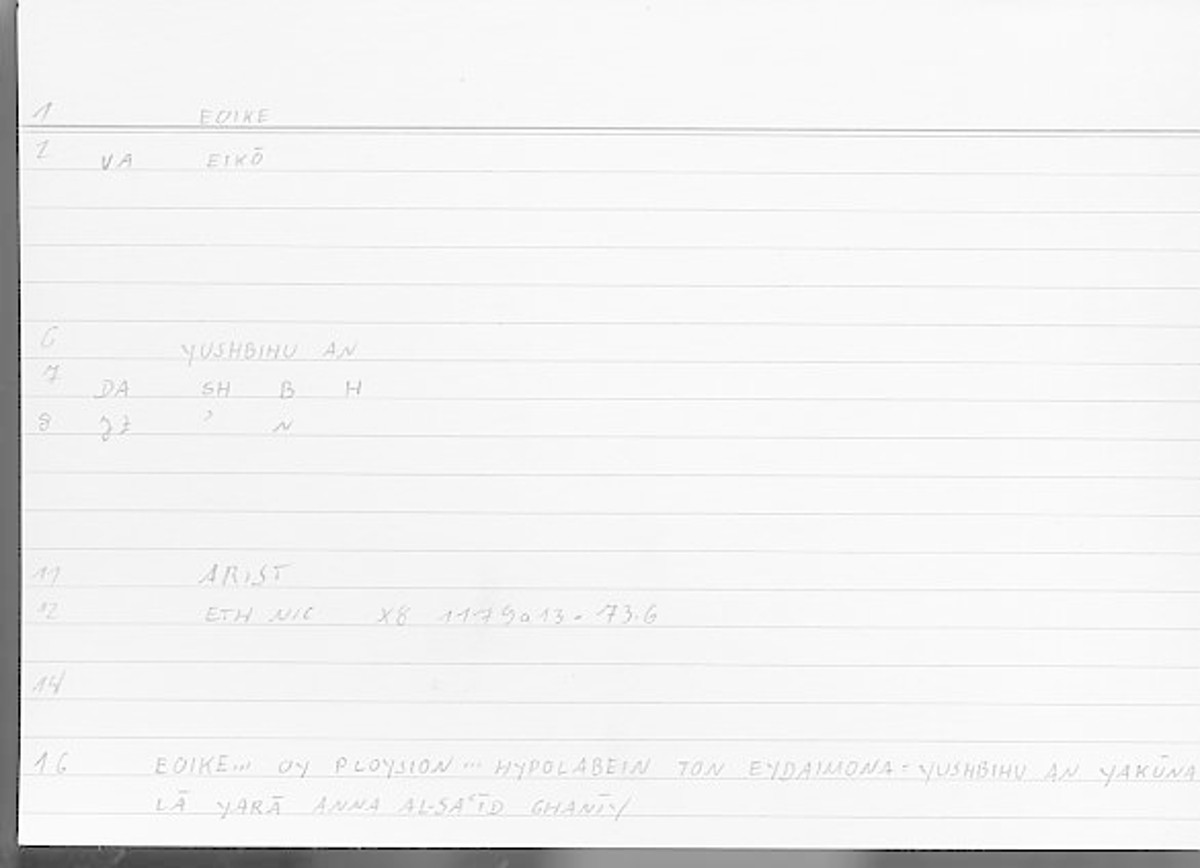 1 EOIKE
2 VA EIKŌ
6 YUSHBIHU AN
7 DA SH B H
8 ZZ ʾ N
11 ARIST
12 ETH NIC X8 1179a13 = 73.6
14
16 EOIKE... OY PLOYSION ... HYPOLABEIN TON EYDAIMONA = YUSHBIHU AN YAKŪNA
LĀ YARĀ ANNA AL-SAʿĪD GHANĪY